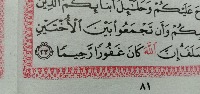 وَعَلَيْكُمْ وَحَلَٰٓئِلُ أَبْنَآئِكُمُ الَّذِينَ
كُمْ وَأَن تَجْمَعُوا۟ بَيْنَ الْأُخْتَيْنِ
سَلَفَ إِنَّ اللَّهَ كَانَ غَفُورًا رَّحِيمًا ﴿٢٣﴾
٨١